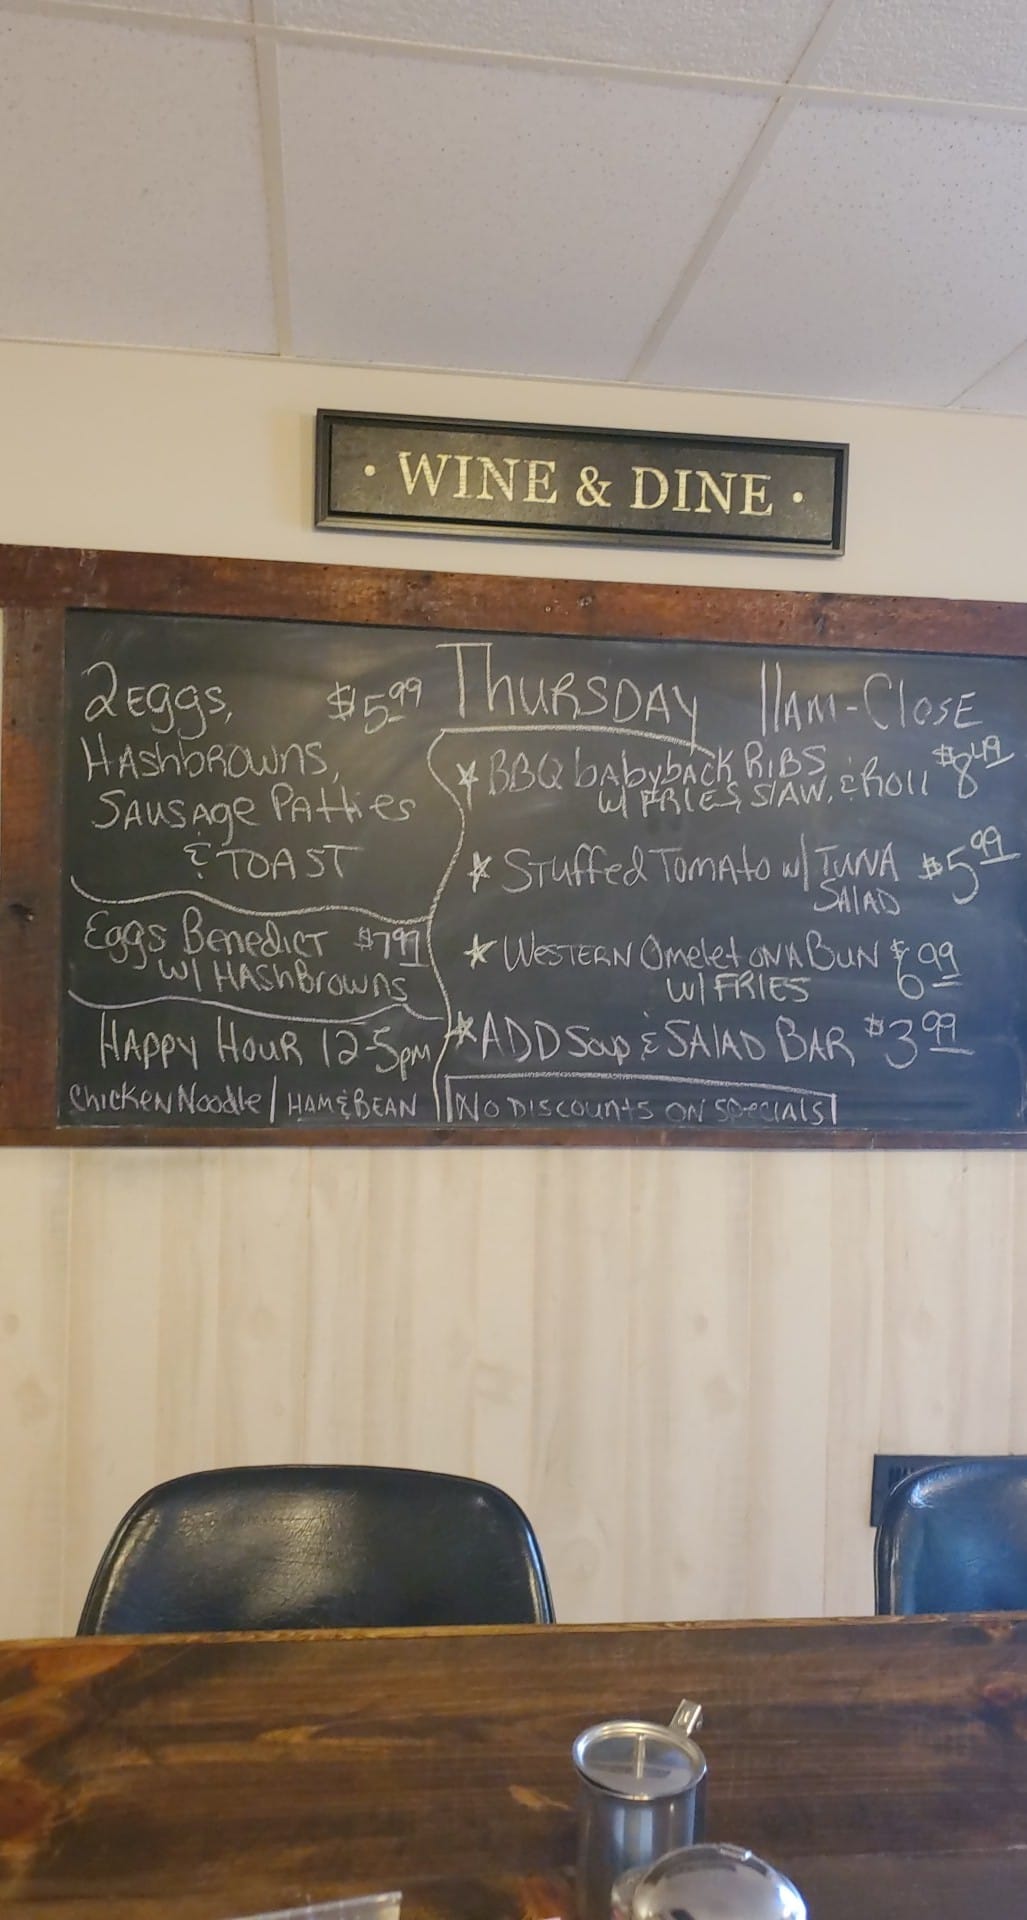 • WINE & DINE •
2 EGGS, $5.99
HASHBROWNS,
SAUSAGE PATTIES
& TOAST
EGGS BENEDICT $7.99
W/ HASHBROWNS
HAPPY HOUR 12-5pm
CHICKEN NOODLE / HAM & BEAN
THURSDAY 11AM-CLOSE
☆ BBQ babyback RIBS $8.49
w/ FRIES, SLAW, & Roll
☆ Stuffed Tomato w/ TUNA $5.99
SALAD
☆ WESTERN Omelet ON A BUN $6.99
W/ FRIES
☆ ADD Soup & SALAD BAR $3.99
NO DISCOUNTS ON SPECIALS